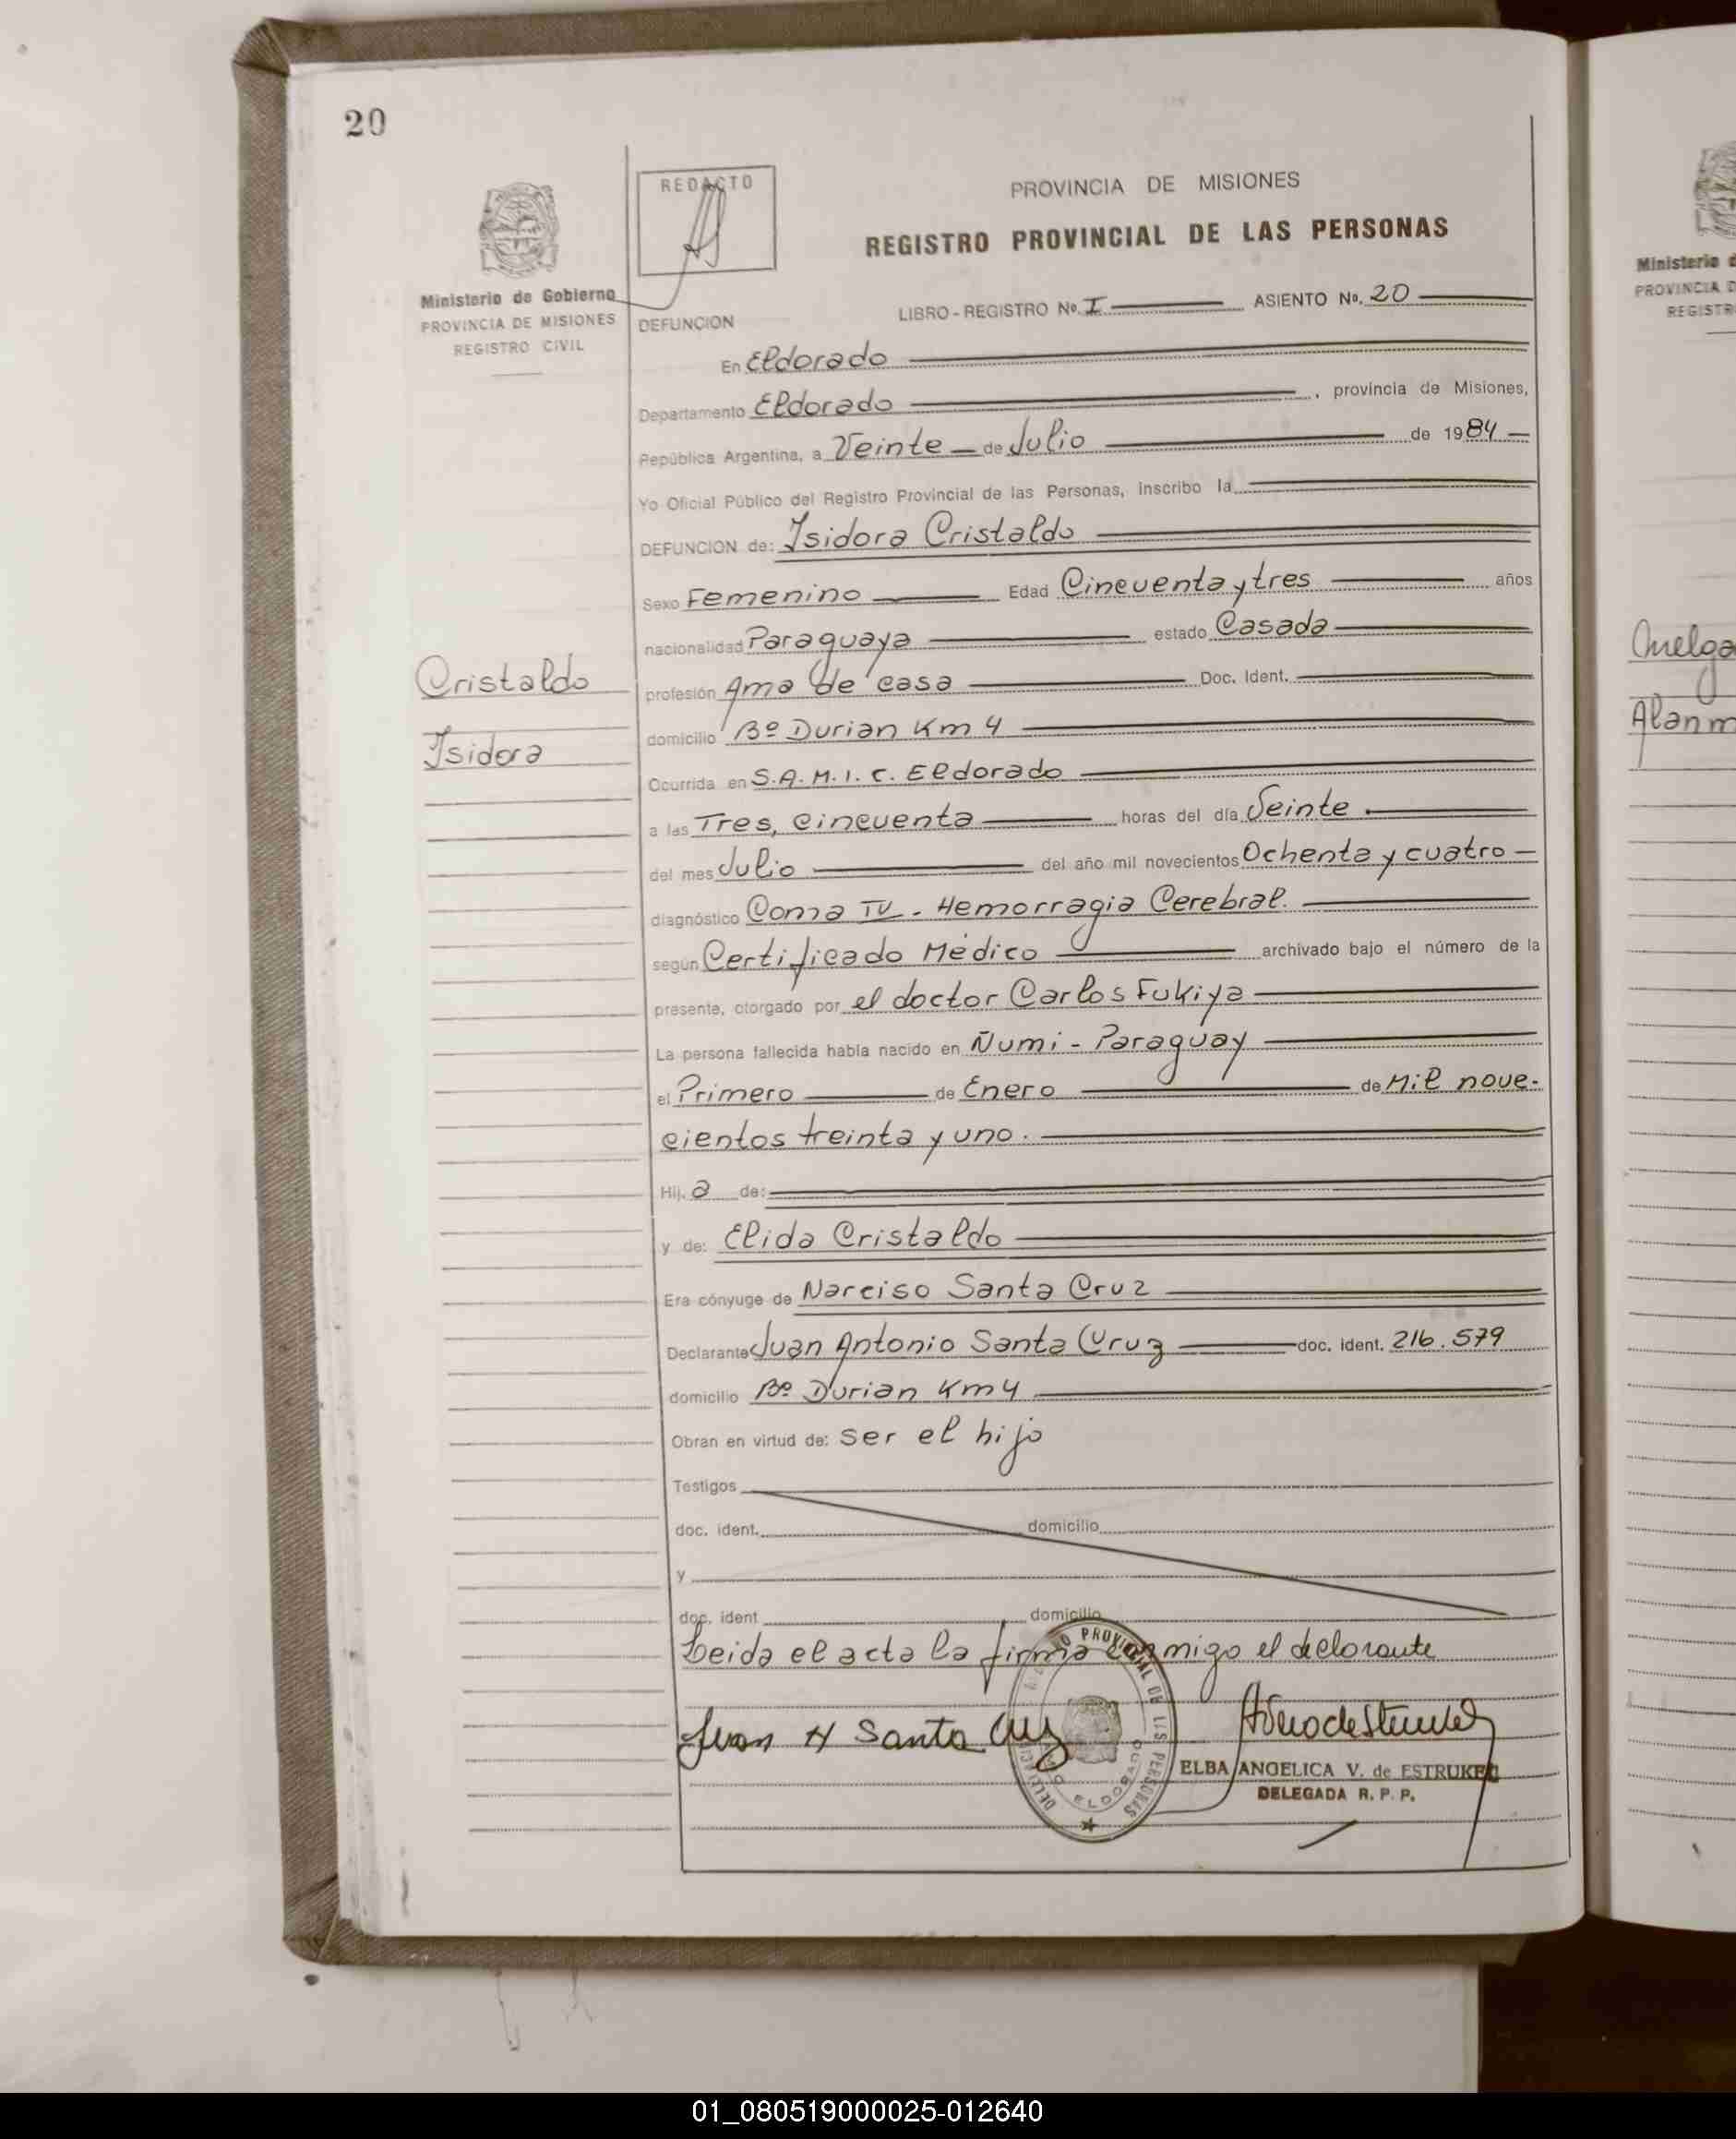 20
REDACTO
PROVINCIA DE MISIONES
REGISTRO PROVINCIAL DE LAS PERSONAS
Ministerio de Gobierno
PROVINCIA DE MISIONES
REGISTRO CIVIL
LIBRO - REGISTRO No. I ASIENTO No. 20
DEFUNCION
En Eldorado
Departamento Eldorado, provincia de Misiones,
República Argentina, a Veinte de Julio de 1984
Yo Oficial Público del Registro Provincial de las Personas, inscribo la
DEFUNCION de: Isidora Cristaldo
Sexo Femenino Edad Cincuenta y tres años
nacionalidad Paraguaya estado Casada
Cristaldo
profesión Ama de casa Doc. Ident.
domicilio Bº Durian Km 4
Isidora
Ocurrida en S.A.M.I.C. Eldorado
a las Tres, cincuenta horas del día Veinte
del mes Julio del año mil novecientos Ochenta y cuatro
diagnóstico Coma IV - Hemorragia Cerebral.
según Certificado Médico archivado bajo el número de la
presente, otorgado por el doctor Carlos Fukiya
La persona fallecida había nacido en Ñumi - Paraguay
el Primero de Enero de Mil nove-
cientos treinta y uno.
Hij a de:
y de: Elida Cristaldo
Era cónyuge de Narciso Santa Cruz
Declarante Juan Antonio Santa Cruz doc. ident. 216.579
domicilio Bº Durian Km 4
Obran en virtud de: ser el hijo
Testigos
doc. ident. domicilio
y
doc. ident domicilio
Leida el acta la firma conmigo el declarante
Juan A Santa Cruz
ELBA ANGELICA V. de ESTRUKEL
DELEGADA R. P. P.
Ministerio d
PROVINCIA D
REGISTR
Amelga
Alanm
01_080519000025-012640